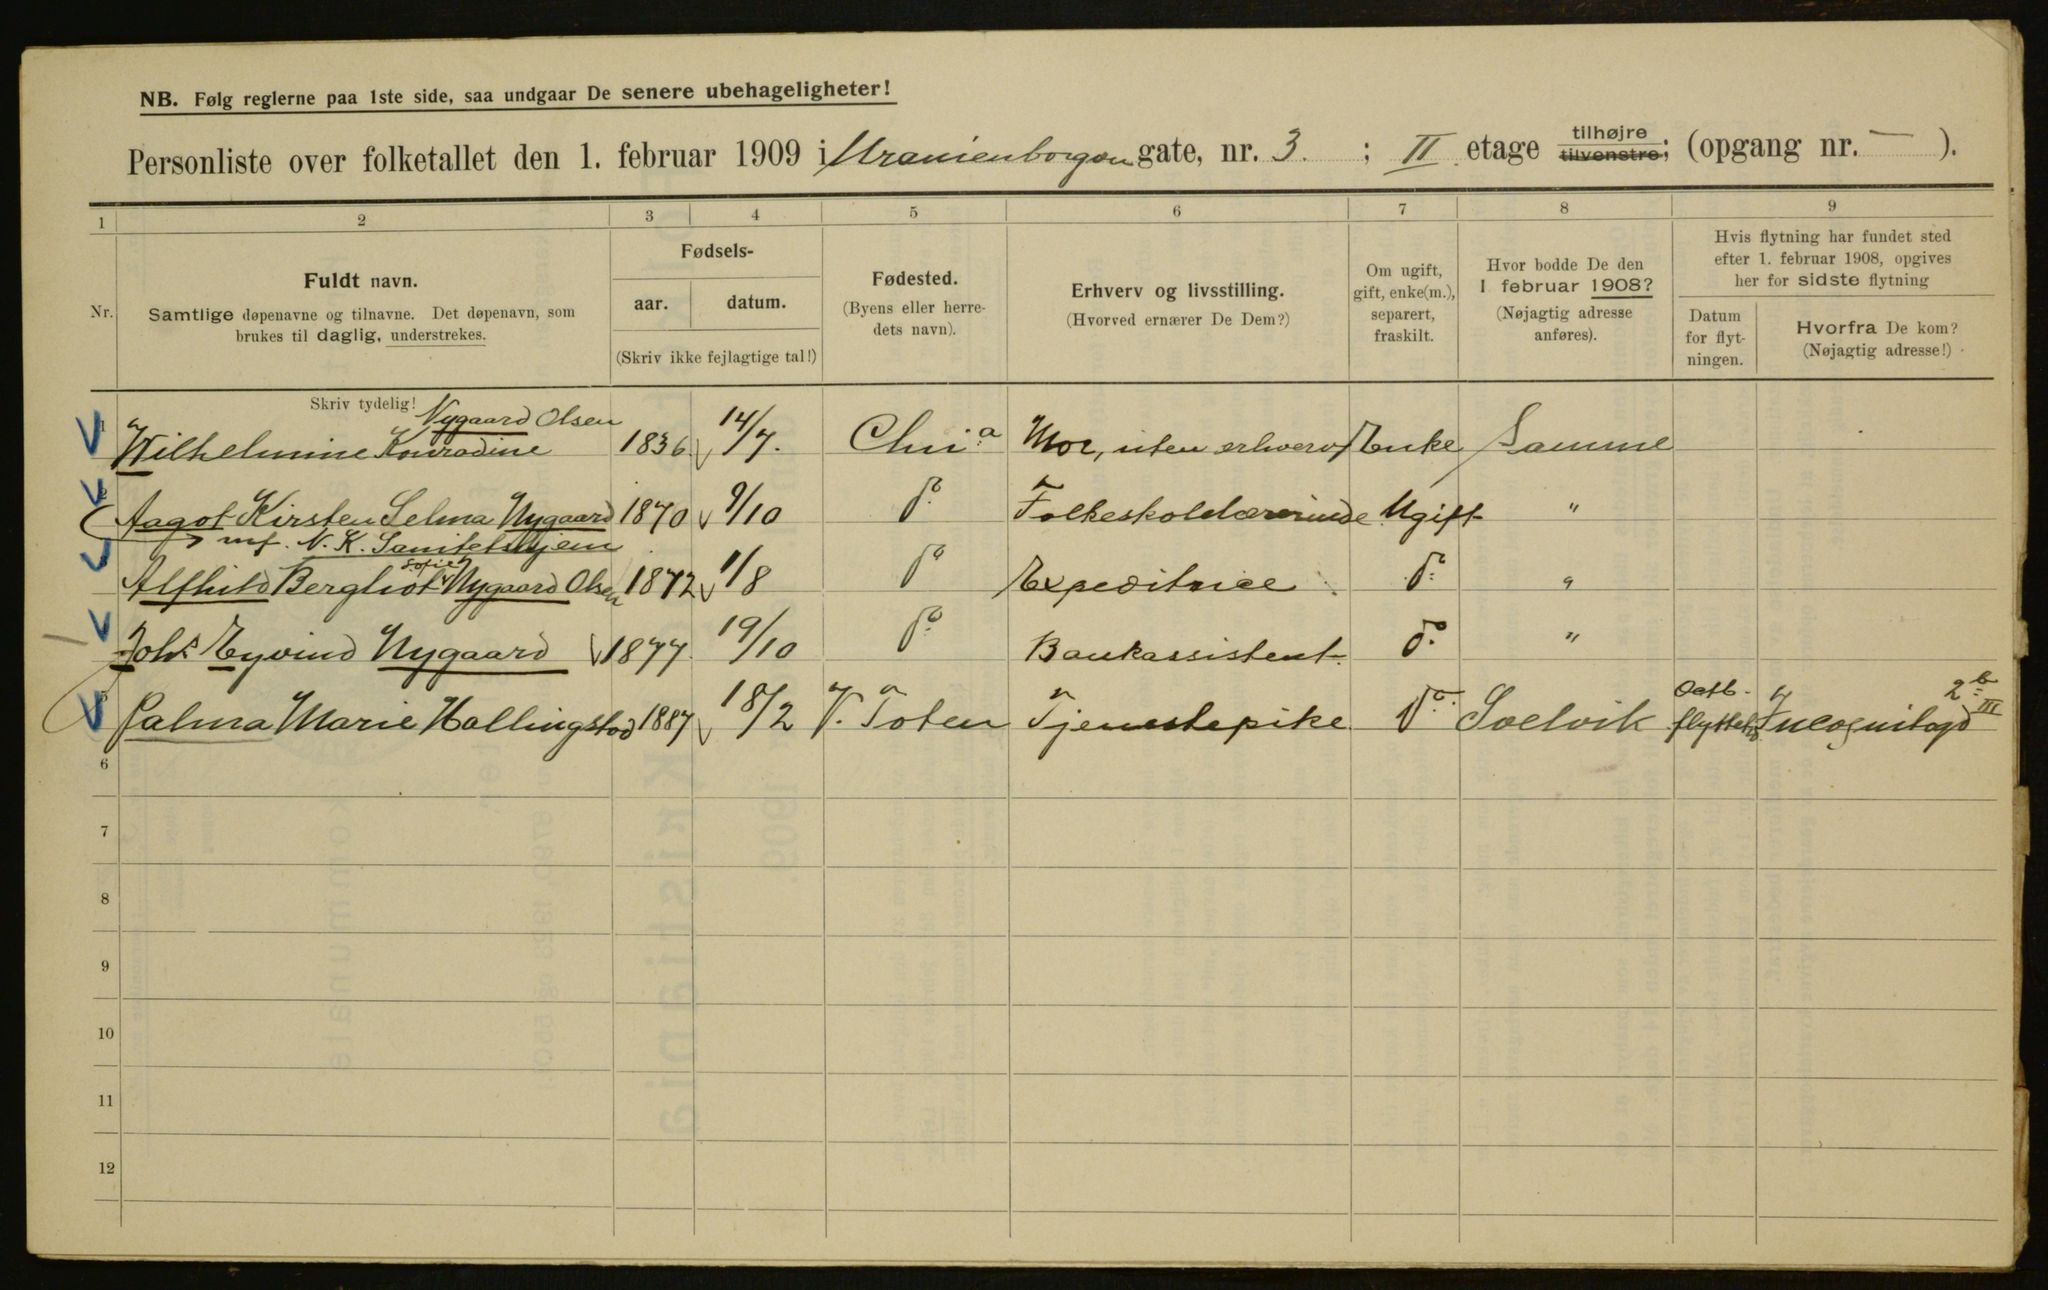 NB. Følg reglerne paa 1ste side, saa undgaar De senere ubehageligheter!
Personliste over folketallet den 1. februar 1909 i Uranienborggen gate, nr. 3. ; II etage tilhøjre tilvenstre; (opgang nr. — ).
1 2 3 4 5 6 7 8 9
Nr.
Fuldt navn.
Samtlige døpenavne og tilnavne. Det døpenavn, som
brukes til daglig, understrekes.
Skriv tydelig!
Fødsels-
aar. datum.
(Skriv ikke fejlagtige tal!)
Fødested.
(Byens eller herre-
dets navn).
Erhverv og livsstilling.
(Hvorved ernærer De Dem?)
Om ugift,
gift, enke(m.),
separert,
fraskilt.
Hvor bodde De den
1 februar 1908?
(Nøjagtig adresse
anføres).
Hvis flytning har fundet sted
efter 1. februar 1908, opgives
her for sidste flytning
Datum
for flyt-
ningen.
Hvorfra De kom?
(Nøjagtig adresse!)
Nygaard Olsen
1 Wilhelmine Konradine 1836 14/7. Chria Mor, uten erhverv Enke Samme
2 Aagot Kirsten Selma Nygaard 1870 9/10 do Folkeskolelærerinde Ugift "
mf. N. K. Sanitetshjem
Sofie
Alfhild Bergliot Nygaard Olsen 1872 1/8 do Expeditrice do "
Johs Eyvind Nygaard 1877 19/10 do Bankassistent do "
5 Palma Marie Hallingstad 1887 18/2 V. Toten Tjenestepike do Svelvik flyttetid Incognitogd 2b III
6
7
8
9
10
11
12